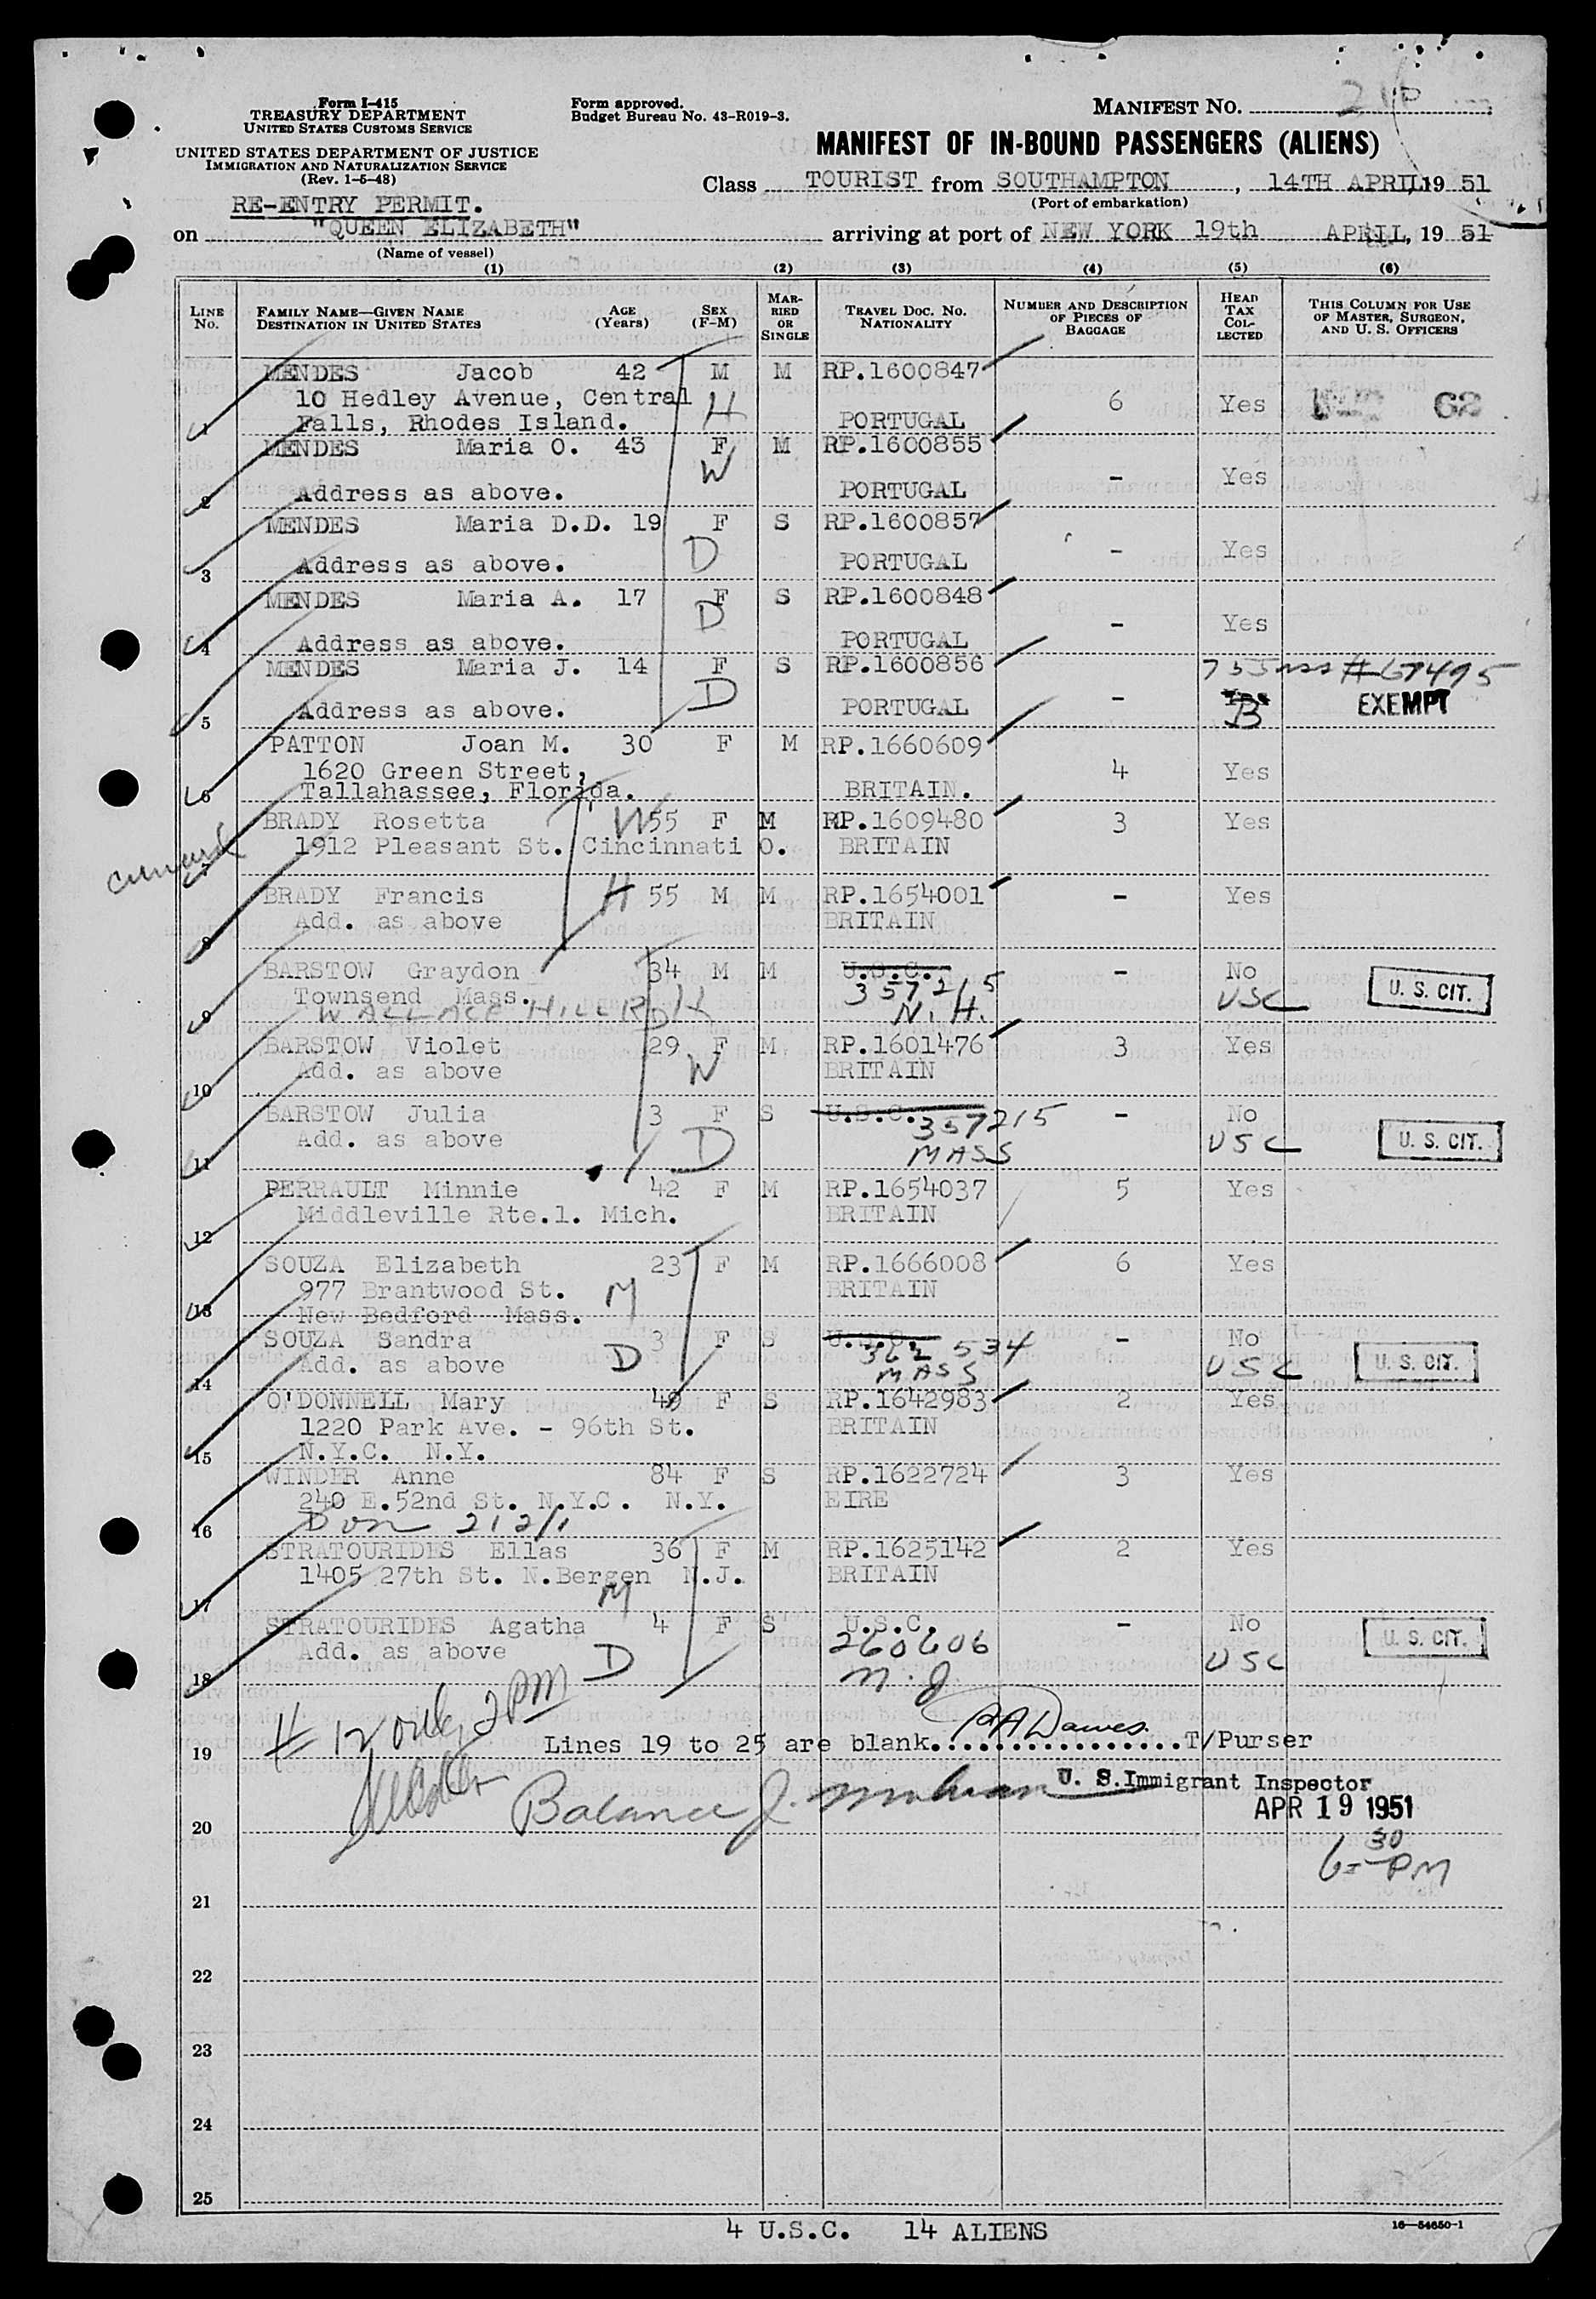 Form I-415
TREASURY DEPARTMENT
UNITED STATES CUSTOMS SERVICE
UNITED STATES DEPARTMENT OF JUSTICE
IMMIGRATION AND NATURALIZATION SERVICE
(Rev. 1-5-48)
Form approved.
Budget Bureau No. 43-R019-3.
MANIFEST NO.
MANIFEST OF IN-BOUND PASSENGERS (ALIENS)
Class TOURIST from SOUTHAMPTON, 14TH APRIL, 19 51
(Port of embarkation)
RE-ENTRY PERMIT.
on "QUEEN ELIZABETH" arriving at port of NEW YORK 19th APRIL, 19 51
(Name of vessel)
(1) (2) (3) (4) (5) (6)
LINE No. FAMILY NAME—GIVEN NAME DESTINATION IN UNITED STATES AGE (Years) SEX (F-M) MARRIED OR SINGLE TRAVEL DOC. NO. NATIONALITY NUMBER AND DESCRIPTION OF PIECES OF BAGGAGE HEAD TAX COLLECTED THIS COLUMN FOR USE OF MASTER, SURGEON, AND U. S. OFFICERS
MENDES Jacob 42 M M RP.1600847
10 Hedley Avenue, Central H 6 Yes 62
1 Falls, Rhodes Island. PORTUGAL
MENDES Maria O. 43 F M RP.1600855
W - Yes
2 Address as above. PORTUGAL
MENDES Maria D.D. 19 F S RP.1600857
D - Yes
3 Address as above. PORTUGAL
MENDES Maria A. 17 F S RP.1600848
D - Yes
4 Address as above. PORTUGAL
MENDES Maria J. 14 F S RP.1600856 #67495
5 Address as above. D PORTUGAL - B EXEMPT
PATTON Joan M. 30 F M RP.1660609
1620 Green Street, 4 Yes
6 Tallahassee, Florida. BRITAIN.
BRADY Rosetta W 55 F M RP.1609480 3 Yes
Cunard 7 1912 Pleasant St. Cincinnati O. BRITAIN
BRADY Francis H 55 M M RP.1654001 - Yes
8 Add. as above BRITAIN
BARSTOW Graydon 34 M M U.S.C. - No
Townsend Mass. 357215 USC U. S. CIT.
9 WALLACE HILL RD H N.H.
BARSTOW Violet 29 F M RP.1601476 3 Yes
10 Add. as above W BRITAIN
BARSTOW Julia 3 F S U.S.C. 357215 - No
11 Add. as above D MASS USC U. S. CIT.
PERRAULT Minnie 42 F M RP.1654037 5 Yes
12 Middleville Rte.1. Mich. BRITAIN
SOUZA Elizabeth 23 F M RP.1666008 6 Yes
977 Brantwood St. M BRITAIN
13 New Bedford Mass.
SOUZA Sandra 3 F S U.S.C. 362 534 - No
14 Add. as above D MASS USC U. S. CIT.
O'DONNELL Mary 49 F S RP.1642983 2 Yes
1220 Park Ave. - 96th St. BRITAIN
15 N.Y.C. N.Y.
WINDER Anne 84 F S RP.1622724 3 Yes
240 E.52nd St. N.Y.C. N.Y. EIRE
16
STRATOURIDES Ellas 36 F M RP.1625142 2 Yes
1405 27th St. N.Bergen N.J. BRITAIN
17 M
STRATOURIDES Agatha 4 F S U.S.C. - No
Add. as above D 260606 USC U. S. CIT.
18 N.J.
# 12 only, 2 PM
19 Lines 19 to 25 are blank. T/Purser
U. S. Immigrant Inspector
Balance J.
APR 19 1951
20
6-30 PM
21
22
23
24
25
4 U.S.C. 14 ALIENS
16—54650-1